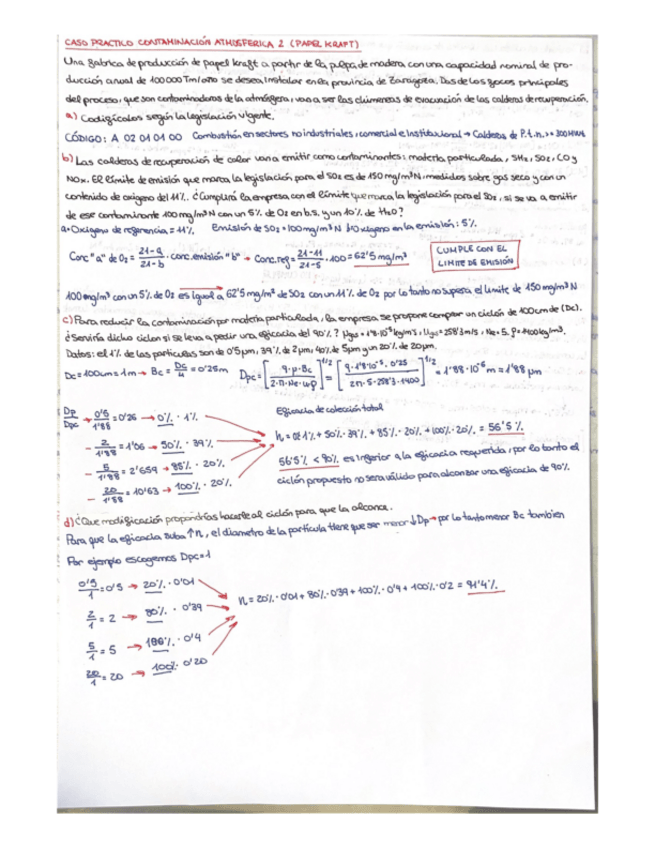 CASO PRACTICO CONTAMINACIÓN ATMOSFERICA 2 (PAPEL KRAFT)
Una fabrica de producción de papel kraft a partir de la pulpa de madera con una capacidad nominal de pro-
ducción anual de 100000 Tm/año se desea instalar en la provincia de Zaragoza. Dos de los focos principales
del proceso, que son contaminadoras de la atmósfera, van a ser las chimeneas de evacuación de las calderas de recuperación.
a) Codifícalos según la legislación vigente.
CÓDIGO: A 02 01 01 00 Combustión en sectores no industriales, comercial e institucional → Calderas de P.t.n. >= 300 MWt
b) Las calderas de recuperación de calor van a emitir como contaminantes: materia particulada, SH2, SO2, CO y
NOx. El límite de emisión que marca la legislación para el SO2 es de 150 mg/m³N, medidos sobre gas seco y con un
contenido de oxígeno del 11%. ¿Cumplirá la empresa con el límite que marca la legislación para el SO2, si se va a emitir
de ese contaminante 100 mg/m³N con un 5% de O2 en b.s. y un 10% de H2O?
a • Oxígeno de referencia = 11% Emisión de SO2 = 100 mg/m³N b • Oxígeno en la emisión: 5%
Conc "a" de O2 = 21-a / 21-b · conc. emisión "b" → Conc. ref = 21-11 / 21-5 · 100 = 62'5 mg/m³
CUMPLE CON EL
LIMITE DE EMISIÓN
100 mg/m³ con un 5% de O2 es igual a 62'5 mg/m³ de SO2 con un 11% de O2 por lo tanto no supera el límite de 150 mg/m³N
c) Para reducir la contaminación por materia particulada, la empresa se propone comprar un ciclón de 100 cm de (Dc).
¿Serviría dicho ciclón si se leva a pedir una eficacia del 90%? Mgas = 1'8·10⁻⁵ kg/m·s, Vgas = 258'3 m/s, Ne = 5, ρ = 1400 kg/m³.
Datos: el 1% de las partículas son de 0'5 µm, 39% de 2 µm, 40% de 5 µm y un 20% de 20 µm.
Dc = 100 cm = 1m → Bc = Dc/4 = 0'25m Dpc = [9·µ·Bc / 2·π·Ne·ωρ]^1/2 = [9·1'8·10⁻⁵·0'25 / 2π·5·258'3·1400]^1/2 = 1'88·10⁻⁶ m = 1'88 µm
Dp/Dpc = 0'5/1'88 = 0'26 → 0% · 1%
- 2/1'88 = 1'06 → 50% · 39%
- 5/1'88 = 2'659 → 85% · 20%
- 20/1'88 = 10'63 → 100% · 20%
Eficacia de colección total
n = 0·1% + 50%·39% + 85%·20% + 100%·20% = 56'5%
56'5% < 90% es inferior a la eficacia requerida, por lo tanto el
ciclón propuesto no sera válido para alcanzar una eficacia de 90%.
d) ¿Que modificación propondrías hacerle al ciclón para que la alcance.
Para que la eficacia suba ↑n, el diametro de la partícula tiene que ser menor ↓Dp → por lo tanto menor Bc tambien
Por ejemplo escogemos Dpc = 1
0'5/1 = 0'5 → 20% · 0'01
2/1 = 2 → 80% · 0'39
5/1 = 5 → 100% · 0'4
20/1 = 20 → 100% · 0'20
n = 20%·0'01 + 80%·0'39 + 100%·0'4 + 100%·0'2 = 91'4%